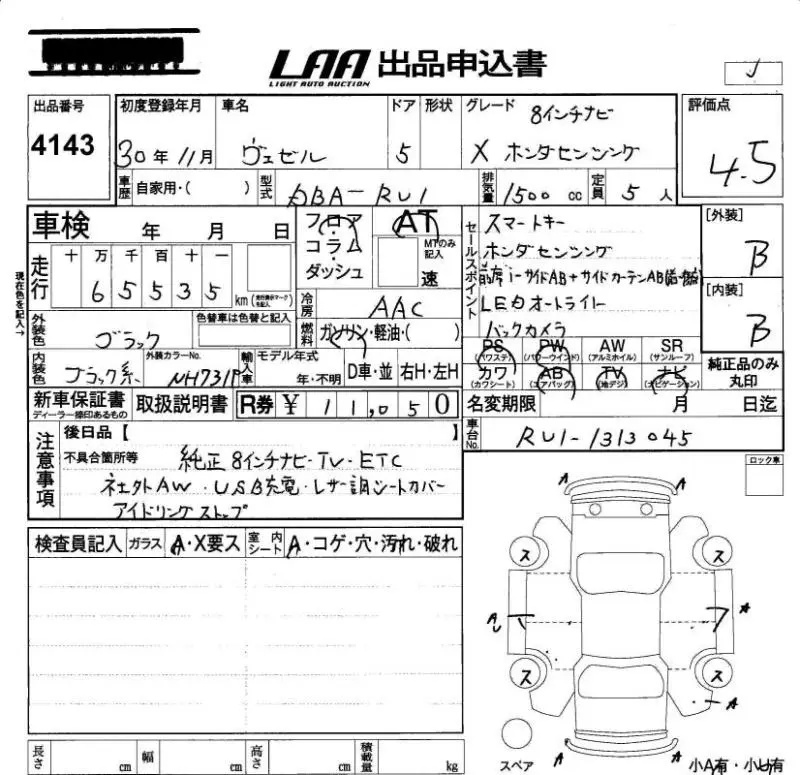 LAA 出品申込書
LIGHT AUTO AUCTION
出品番号 4143
初度登録年月 30年11月
車名 ヴェゼル
ドア 5
形状
グレード 8インチナビ
X ホンダセンシング
評価点 4.5
車歴 自家用・( )
型式 DBA-RU1
排気量 1500 cc
定員 5 人
車検 年 月 日
フロア・コラム・ダッシュ
AT
MTのみ記入
速
セールスポイント
スマートキー
ホンダセンシング
LEDオートライト
バックカメラ
[外装] B
[内装] B
現在色を記入→
走行 十 万 千 百 十 一
6 5 5 3 5 km
冷房 AAC
燃料 ガソリン・軽油・( )
外装色 ブラック
色替車は色替と記入
内装色 ブラック系
外装カラーNo. NH731P
輸入車 モデル年式 年・不明 D車・並 右H・左H
PS (パワステ) PW (パワーウインド) AW (アルミホイル) SR (サンルーフ)
カワ (カワシート) AB (エアバッグ) TV (地デジ) ナビ (ナビゲーション)
純正品のみ丸印
新車保証書
ディーラー捺印あるもの
取扱説明書
R券 ¥ 11,050
名変期限 月 日迄
車台No. RU1-1313045
注意事項
後日品【 】
不具合箇所等 純正8インチナビ・TV・ETC
社外AW・USB充電・レザー調シートカバー
アイドリングストップ
ロック車
検査員記入 ガラス A・X要ス 室内シート A・コゲ・穴・汚れ・破れ
A A
ス ス
A
ス ス
A
A A
スペア
小A有・小U有
長さ cm 幅 cm 高さ cm 積載量 kg